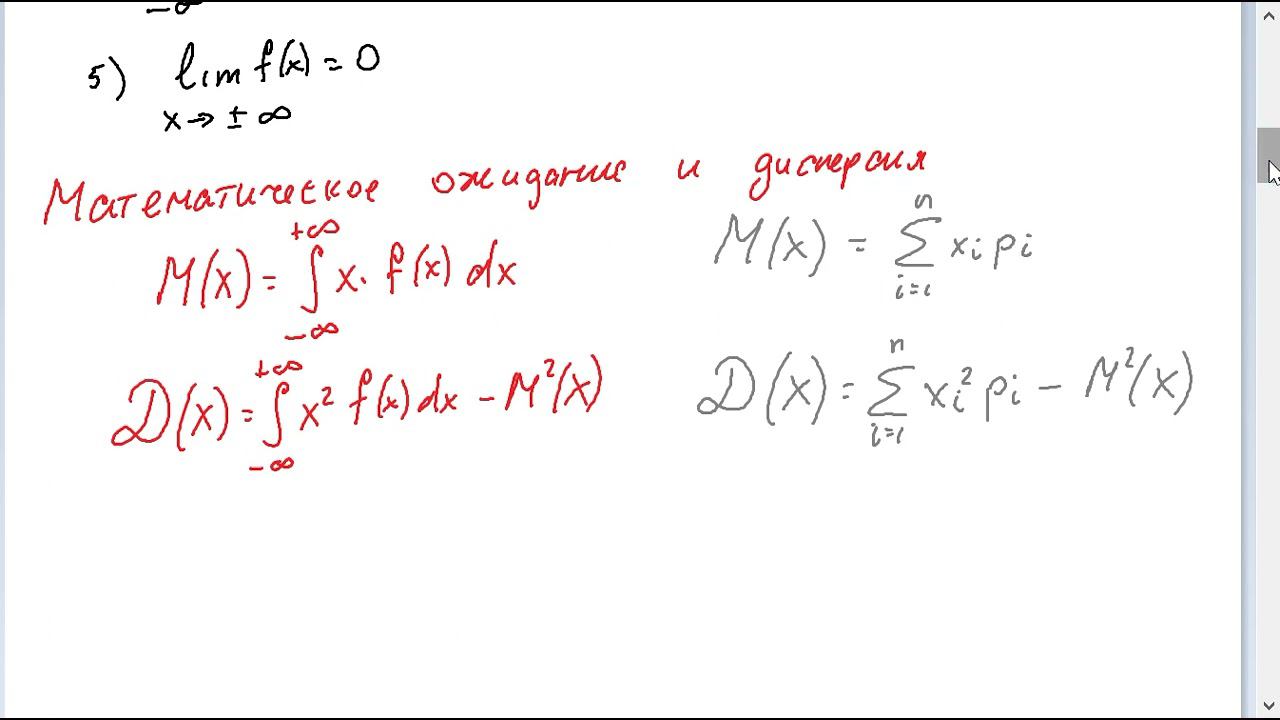 −∞
5) lim f(x) = 0
x → ± ∞
Математическое ожидание и дисперсия
M(x) = ∫₋∞⁺∞ x · f(x) dx
M(x) = ∑ᵢ₌₁ⁿ xᵢ pᵢ
D(x) = ∫₋∞⁺∞ x² f(x) dx − M²(x)
D(x) = ∑ᵢ₌₁ⁿ xᵢ² pᵢ − M²(x)